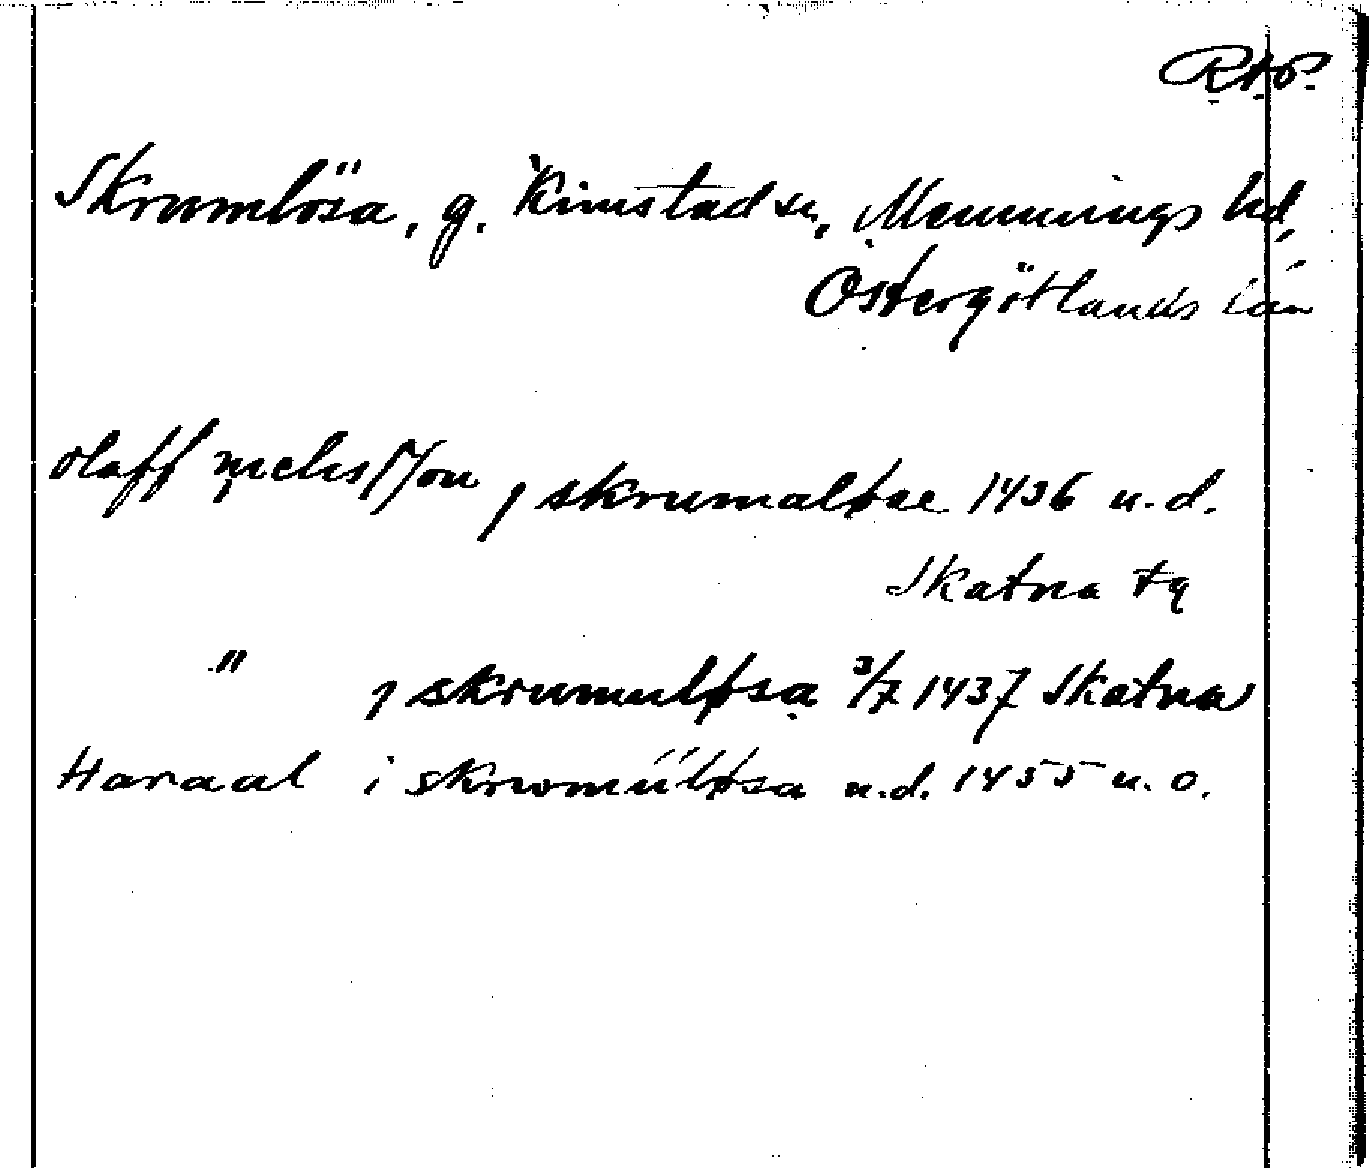 R.A.P.
Skrumlösa, g. Kimstad sn, Memmings hd,
Östergötlands län
olaff niels ſſon j skrumaløse 1436 u.d.
Skatna tg
" j skrumuløsa 3/7 1437 Skatna
Haraal i skrwmúløsa u.d. 1455 u.o.